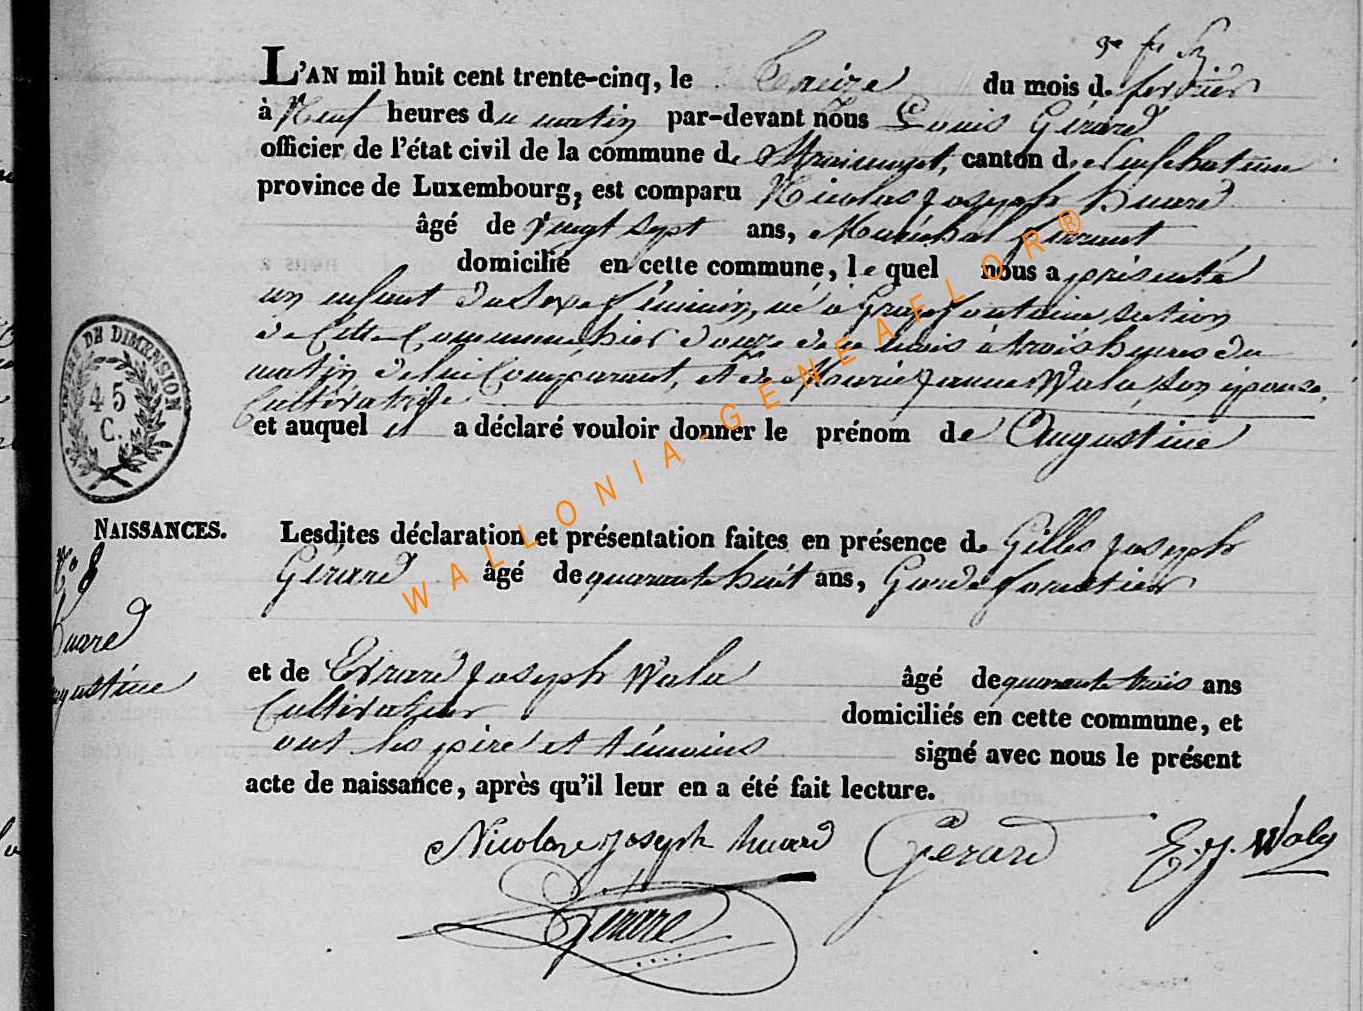 L'AN mil huit cent trente-cinq, le treize du mois de février
à Neuf heures du matin par-devant nous Louis Gérard
officier de l'état civil de la commune de canton de Neufchateau
province de Luxembourg, est comparu Nicolas Joseph huard
âgé de vingt sept ans, Maréchal ferrant
domicilié en cette commune, le quel nous a présenté
un enfant du Sexe féminin, né à Grapfontaine, section
de Cette Commune, hier douze de ce mois à trois heures du
matin de lui Comparant, et de Marie Jeanne Wala, son épouse,
Cultivatrice
et auquel il a déclaré vouloir donner le prénom de Augustine
TIMBRE DE DIMENSION
45
C.
NAISSANCES.
N° 8
huard
Augustine
Lesdites déclaration et présentation faites en présence de Gilles Joseph
Gérard âgé de quarante huit ans, Garde forestier
et de Evrard Joseph Wala âgé de quarante trois ans
Cultivateur domiciliés en cette commune, et
ont les père et témoins signé avec nous le présent
acte de naissance, après qu'il leur en a été fait lecture.
Nicolas Joseph huard Gérard E. J. Wala
Gérard
WALLONIA-GENEAFLOR®